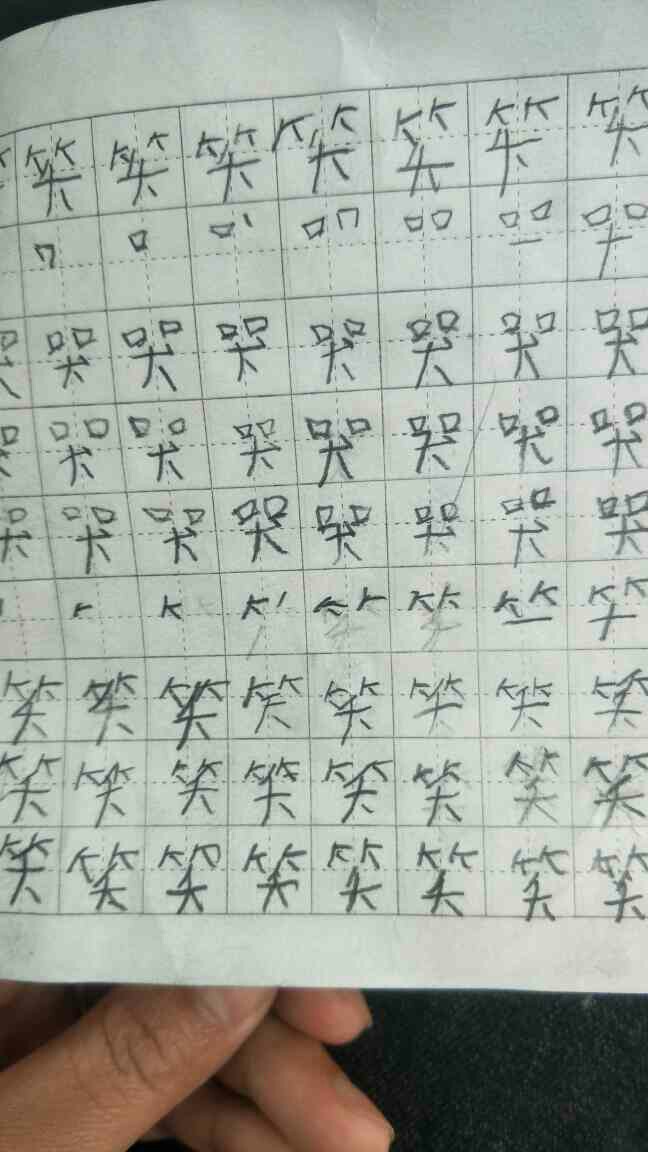 笑笑笑笑笑笑笑
口 吅
哭哭哭哭哭哭哭
哭哭哭哭哭哭哭
哭哭哭哭哭哭哭
笑笑笑笑笑笑笑笑
笑笑笑笑笑笑笑笑
笑笑笑笑笑笑笑笑